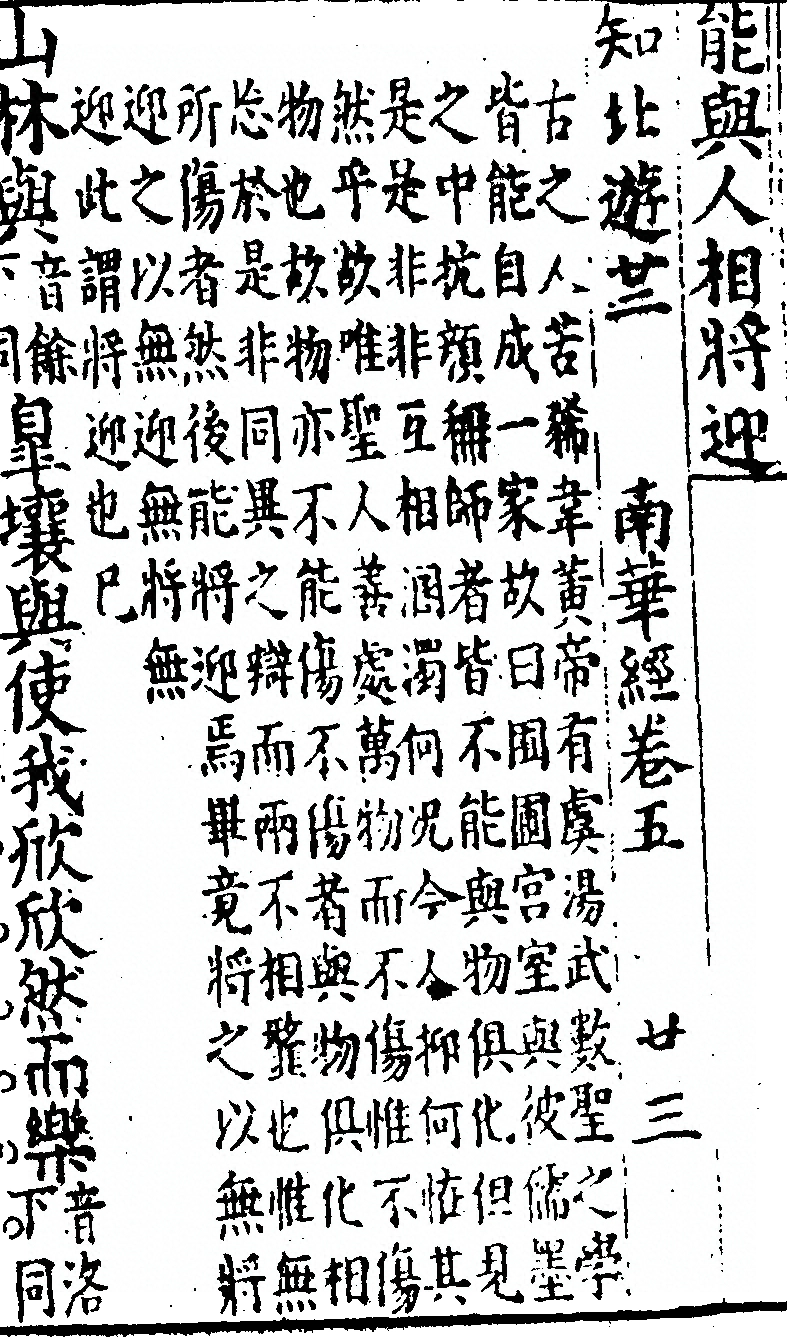 能與人相將迎
知北遊廿二 南華經卷五 廿三
古之人若狶韋黃帝有虞湯武數聖之學
皆能自成一家故曰囿圃宮室與彼儒墨
之中抗顏稱師者皆不能與物俱化但見
是是非非互相溷濁何况今人抑何恠其
然乎故唯聖人善處萬物而不傷惟不傷
物也故物亦不能傷不傷者與物俱化相
忘於是非同異之辯而兩不相虀也惟無
所傷者然後能將迎焉畢竟將之以無將
迎之以無迎無將無
迎此謂將迎也已
山林與音餘下同皐壤與使我欣欣然而樂音洛下同